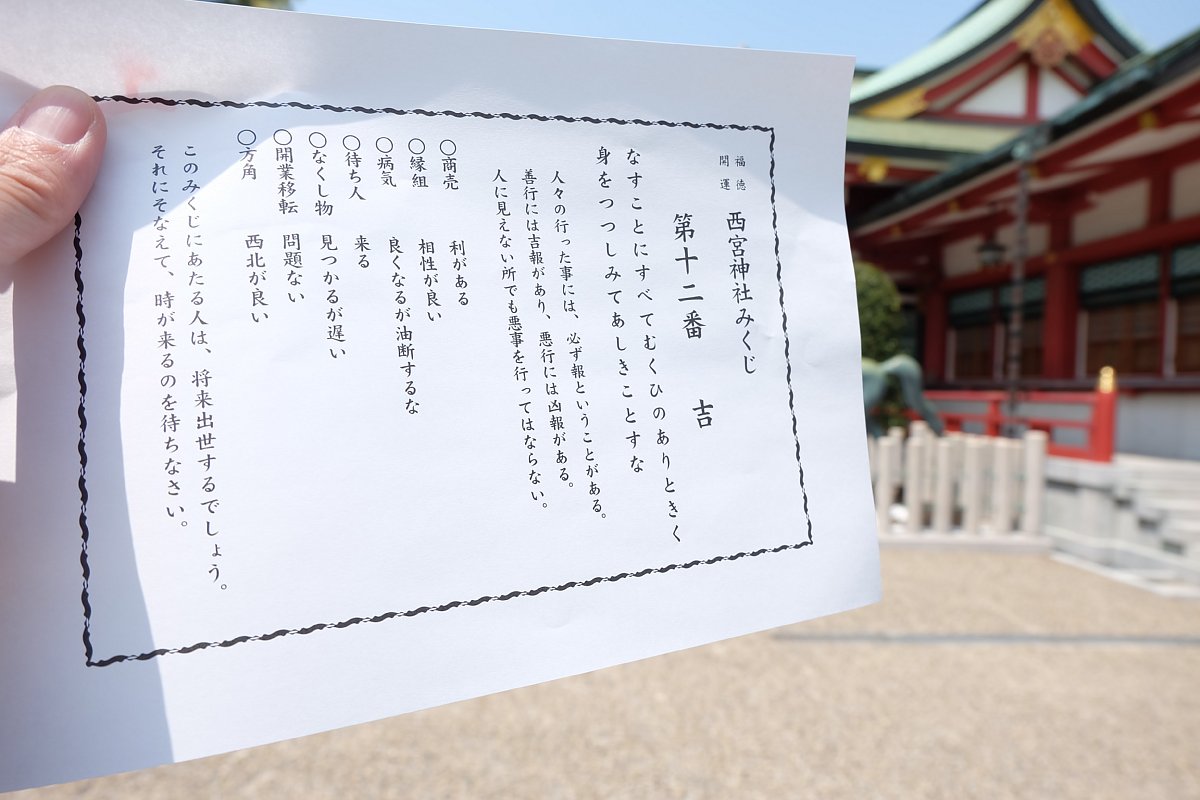 福徳
開運
西宮神社みくじ
第十二番 吉
なすことにすべてむくひのありときく
身をつつしみてあしきことすな
人々の行った事には、必ず報ということがある。
善行には吉報があり、悪行には凶報がある。
人に見えない所でも悪事を行ってはならない。
○商売 利がある
○縁組 相性が良い
○病気 良くなるが油断するな
○待ち人 来る
○なくし物 見つかるが遅い
○開業移転 問題ない
○方角 西北が良い
このみくじにあたる人は、将来出世するでしょう。
それにそなえて、時が来るのを待ちなさい。